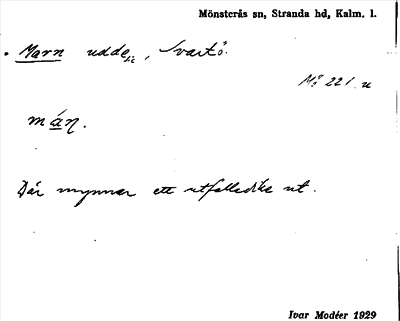 Mönsterås sn, Stranda hd, Kalm. l.
Marn udde, Svartö.
Mö 221 u
mán.
Där mynnar ett utfallsdike ut.
Ivar Modéer 1929